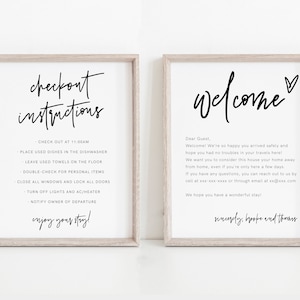 checkout
instructions
· CHECK OUT AT 11:00AM
· PLACE USED DISHES IN THE DISHWASHER
· LEAVE USED TOWELS ON THE FLOOR
· DOUBLE-CHECK FOR PERSONAL ITEMS
· CLOSE ALL WINDOWS AND LOCK ALL DOORS
· TURN OFF LIGHTS AND AC/HEATER
· NOTIFY OWNER OF DEPARTURE
enjoy your stay!
welcome
Dear Guest,
Welcome! We're so happy you arrived safely and
hope you had no troubles in your travels here!
We want you to consider this house your home away
from home, even if you're only here a few days.
If you have any questions, you can reach out to us by
call at xxx-xxx-xxxx or through email at xx@xxxx.com
We hope you have a wonderful stay!
sincerely, brooke and thomas